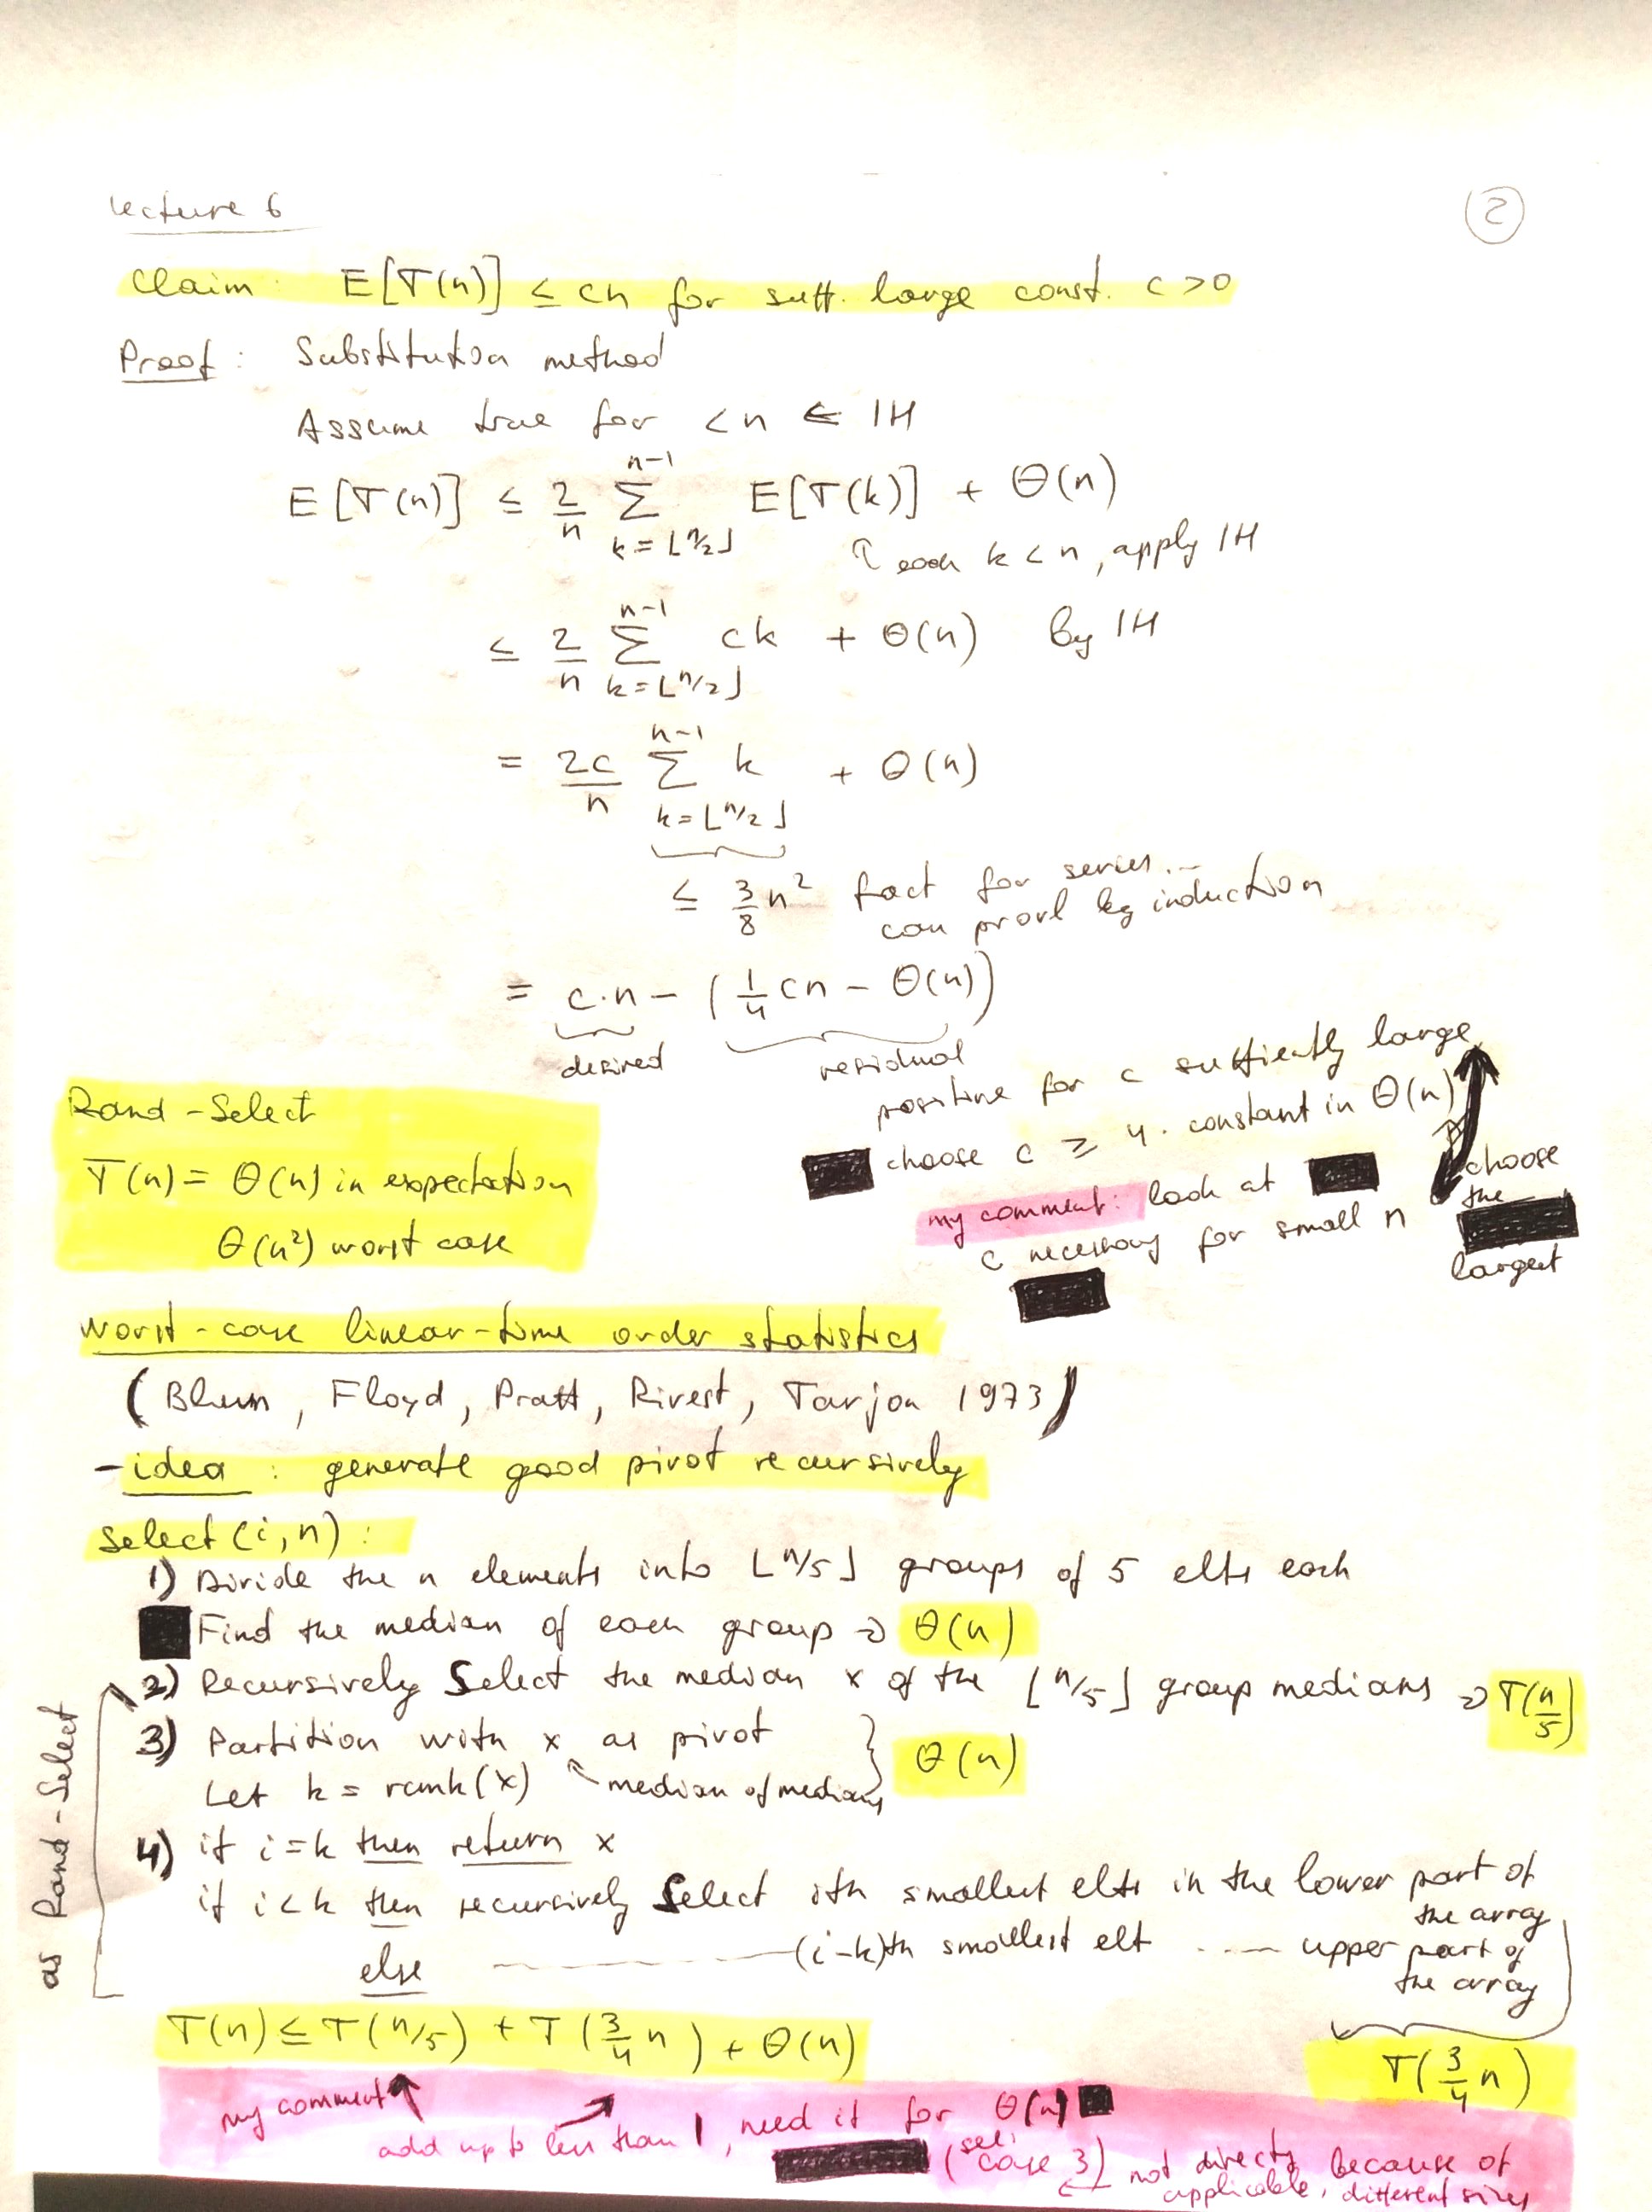 Lecture 6
2
Claim: E[T(n)] ≤ cn for suff. large const. c > 0
Proof: Substitution method
Assume true for < n ⇐ IH
E[T(n)] ≤ 2/n ∑_{k=⌊n/2⌋}^{n-1} E[T(k)] + Θ(n)
↑ each k < n, apply IH
≤ 2/n ∑_{k=⌊n/2⌋}^{n-1} ck + Θ(n) by IH
= 2c/n ∑_{k=⌊n/2⌋}^{n-1} k + Θ(n)
≤ 3/8 n² fact for series...
can prove by induction
= c·n - (1/4 cn - Θ(n))
desired residual
positive for c suffiently large
choose c ≥ 4 · constant in Θ(n)
my comment: look at
c necessary for small n
choose
the
largest
Rand-Select
T(n) = Θ(n) in expectation
Θ(n²) worst case
worst-case linear-time order statistics
(Blum, Floyd, Pratt, Rivest, Tarjan 1973)
- idea: generate good pivot recursively
select(i,n):
1) Divide the n elements into ⌊n/5⌋ groups of 5 elts each
Find the median of each group ⇒ Θ(n)
2) Recursively Select the median x of the ⌊n/5⌋ group medians ⇒ T(n/5)
3) Partition with x as pivot
Let k = rank(x) ↖ median of medians } Θ(n)
4) if i=k then return x
if i<k then recursively Select ith smallest elts in the lower part of
the array
else ———— (i-k)th smallest elt ..— upper part of
the array
as Rand-Select
T(3/4 n)
T(n) ≤ T(n/5) + T(3/4 n) + Θ(n)
my comment
add up to less than 1, need it for Θ(n)
(see case 3) not directly applicable, because of different sizes